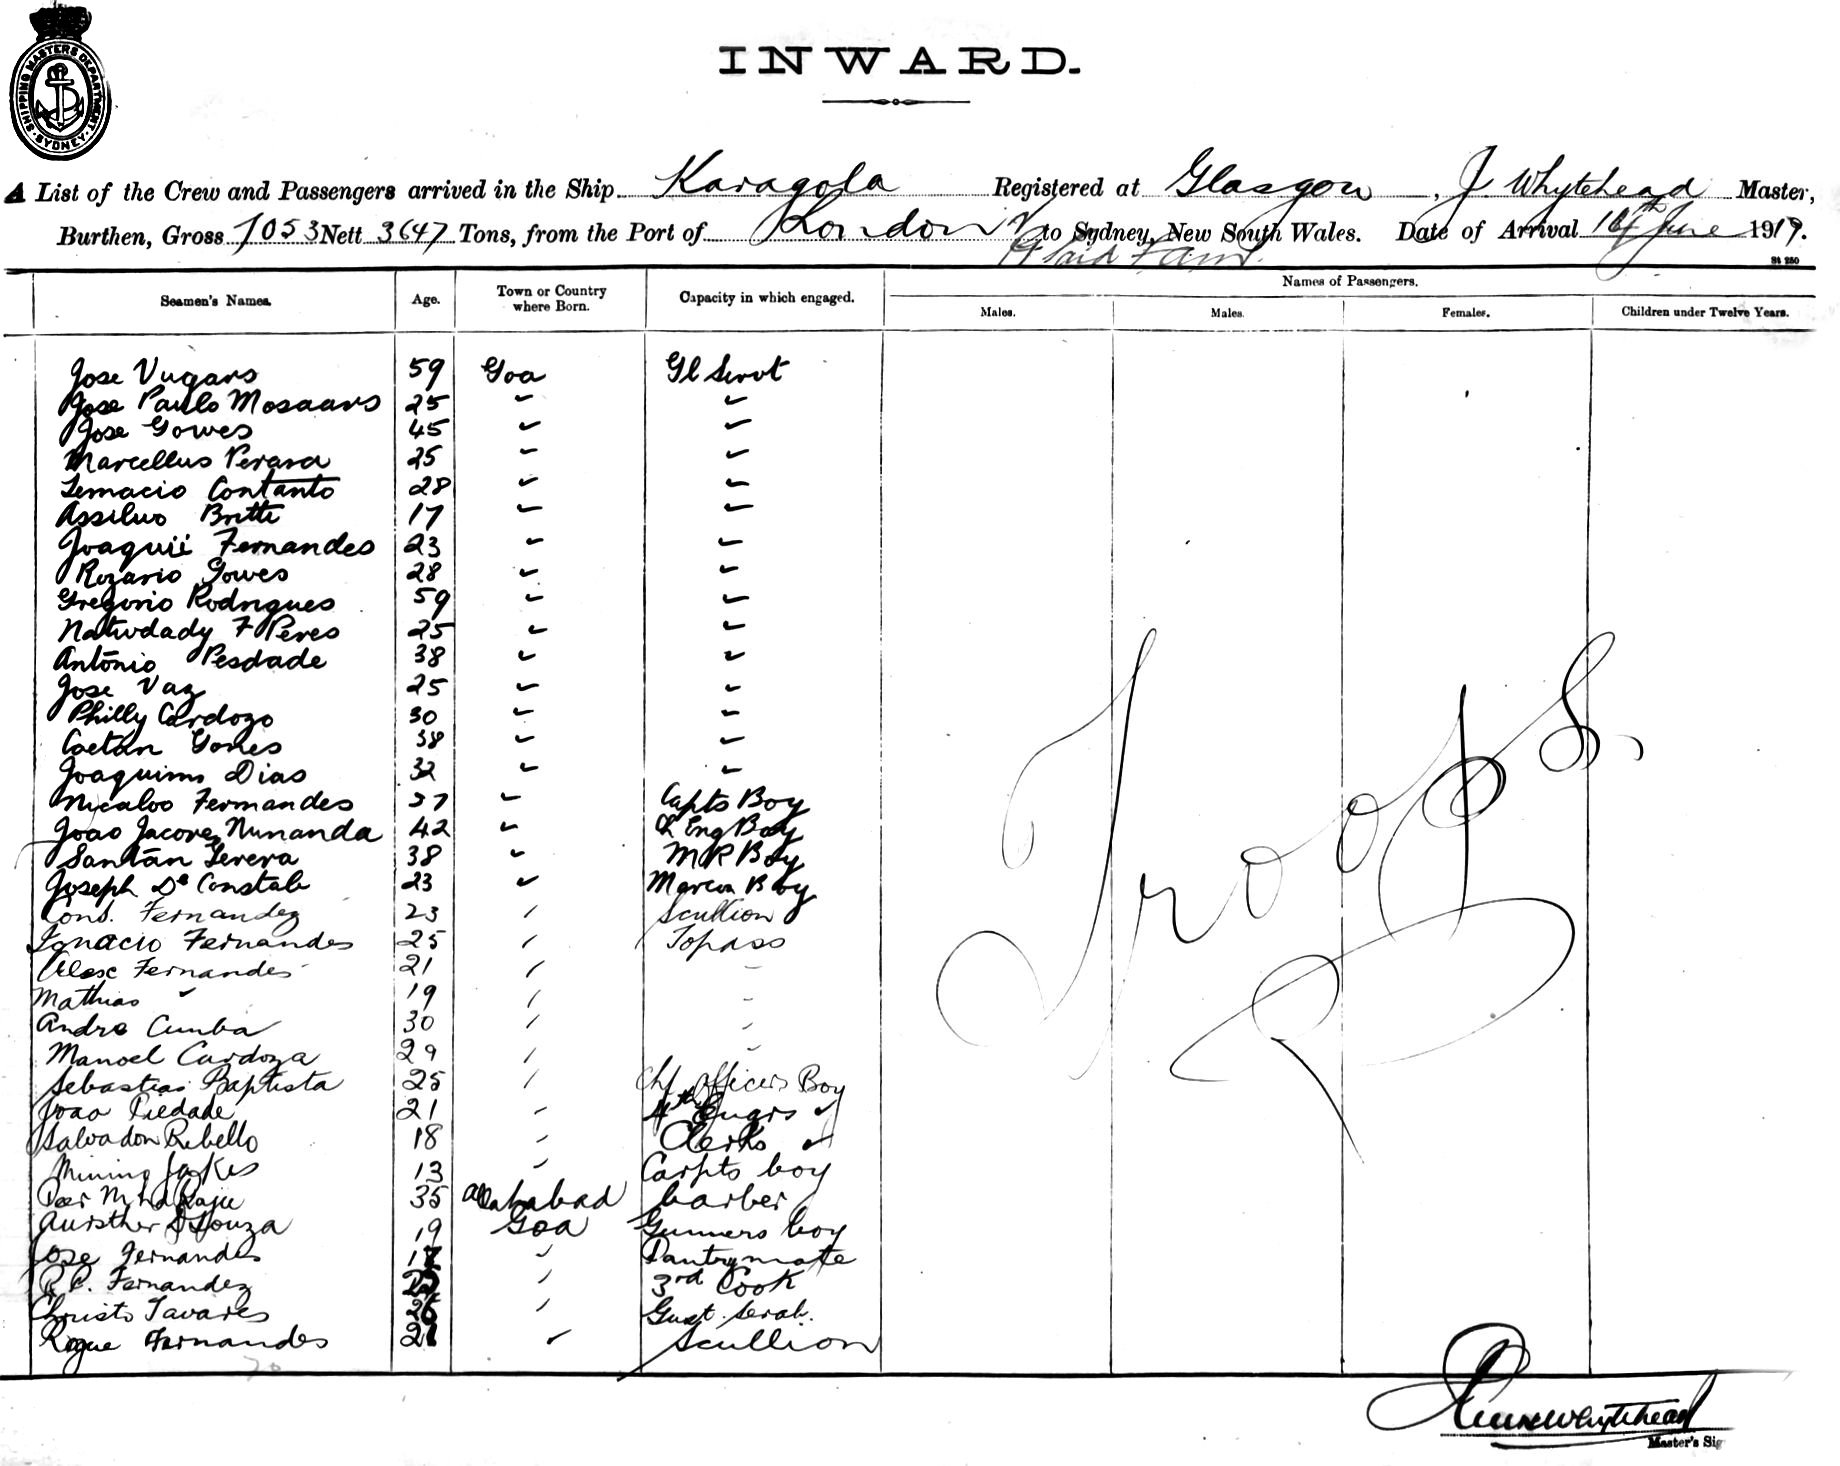 SHIPPING MASTERS DEPARTMENT. SYDNEY
INWARD.
A List of the Crew and Passengers arrived in the Ship Karagola Registered at Glasgow, J Whytehead Master,
Burthen, Gross 7053 Nett 3647 Tons, from the Port of London to Sydney, New South Wales. Date of Arrival June 1919.
St 250
Seamen's Names. Age. Town or Country where Born. Capacity in which engaged. Names of Passengers.
Males. Males. Females. Children under Twelve Years.
Jose Vugars 59 Goa Gl Servt
Jose Paulo Mosaars 25 " "
Jose Gowes 45 " "
Marcellus Perara 25 " "
Lemacio Contanto 28 " "
Assiluo Britti 17 " "
Joaquii Fernandes 23 " "
Rozario Gowes 28 " "
Gregorio Rodrigues 59 " "
Natividady F Peres 25 " "
António Pesdade 38 " "
Jose Vaz 25 " "
Philly Cardozo 30 " "
Caetan Gomes 38 " "
Joaquim Dias 32 " "
Nicaloo Fernandes 27 " Capts Boy
Joao Jacores Nunanda 42 " Ch Eng Boy
Santan Ferera 38 " M R Boy
Joseph De Constab 23 " Marcon Boy
Cons. Fernandez 23 " Scullion
Ignacio Fernandes 25 " Topass
Alesc Fernandes 21 " "
Mathias " 19 " "
Andre Cunha 30 " "
Manoel Cardoza 29 " "
Sebastiao Baptista 25 " Chf officers Boy
Joao Piedade 21 " 4th Engrs "
Salvadon Rebello 18 " Clerks "
Mining Jaskes 13 " Carpts boy
Peer Mhd Raju 35 Allahabad barber
Aursther D Souza 19 Goa Gunners boy
Jose Fernandes " Pantrymate
R. P. Fernandez " 3rd Cook
Christo Tavares 26 " Gust. Serab.
Roque Fernandes 21 " Scullion
Troops.
Whytehead
Master's Sig